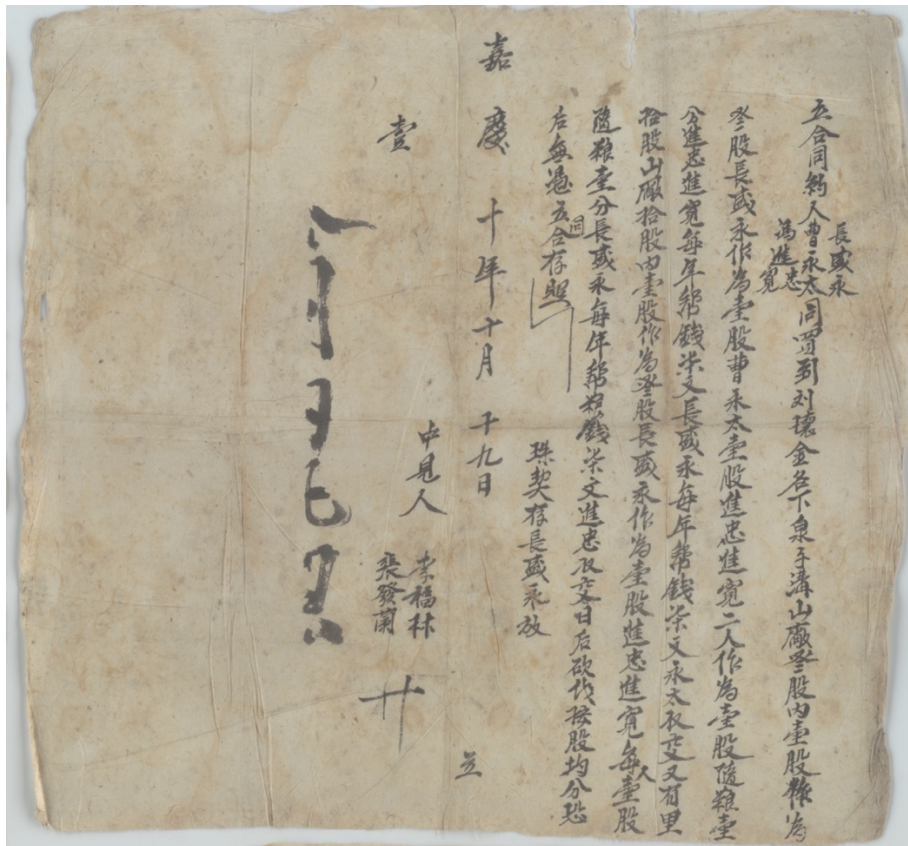 立合同約人曹永太長盛永馮進忠寬同買到刘瓌金名下泉子溝山廠叄股內壹股作為
叄股長盛永作為壹股曹永太壹股進忠進寬二人作為壹股隨粮壹
分進忠進寬每年幇錢柒文長盛永每年幇錢柒文永太收交又有里
拾股山廠拾股內壹股作為叄股長盛永作為壹股進忠進寬每人壹股
隨粮壹分長盛永每年幇粮錢柒文進忠收交日后砍伐按股均分恐
后無憑立合同存照
珠契存長盛永放
嘉慶十年十月十九日 立
中見人
李福林
張發蘭
十
壹